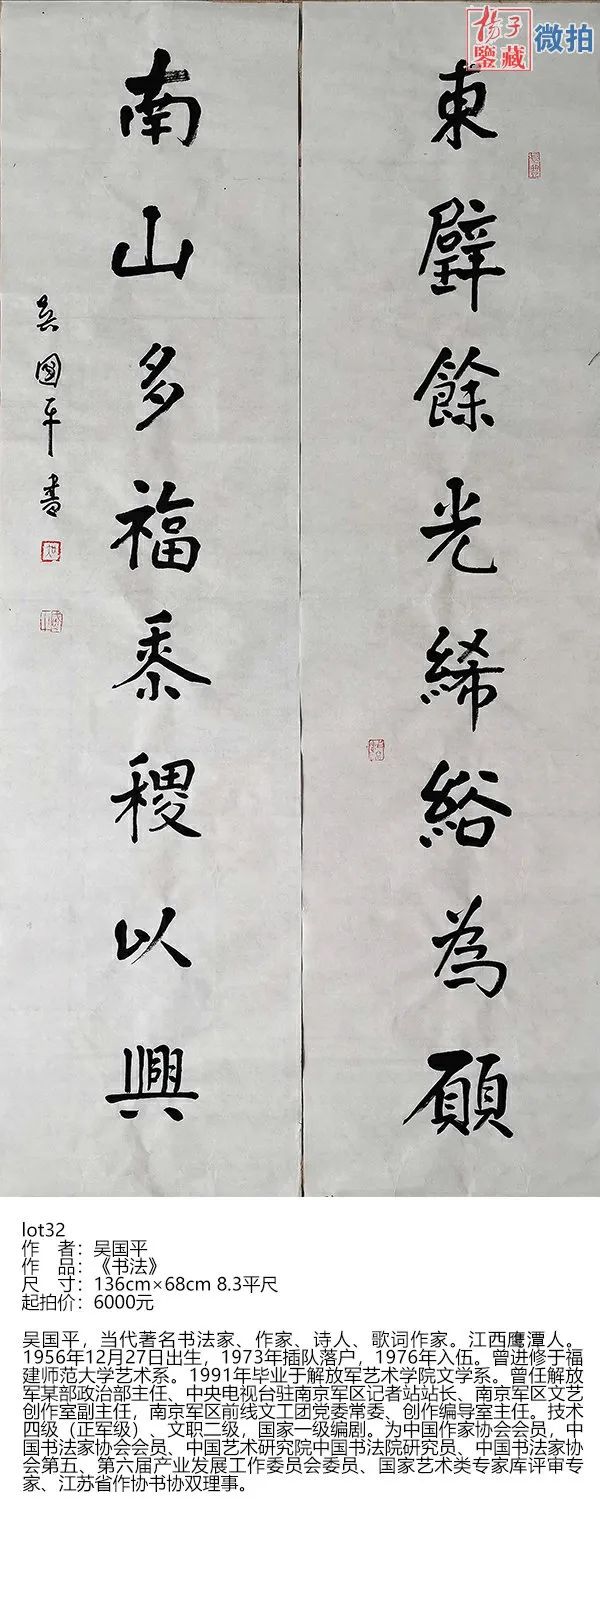 杨子
鉴藏
微拍
東壁餘光絺綌為願
南山多福黍稷以興
吴國平書
lot32
作 者：吴国平
作 品：《书法》
尺 寸：136cm×68cm 8.3平尺
起拍价：6000元
吴国平，当代著名书法家、作家、诗人、歌词作家。江西鹰潭人。
1956年12月27日出生，1973年插队落户，1976年入伍。曾进修于福
建师范大学艺术系。1991年毕业于解放军艺术学院文学系。曾任解放
军某部政治部主任、中央电视台驻南京军区记者站站长、南京军区文艺
创作室副主任，南京军区前线文工团党委常委、创作编导室主任。技术
四级（正军级）、文职二级，国家一级编剧。为中国作家协会会员，中
国书法家协会会员、中国艺术研究院中国书法院研究员、中国书法家协
会第五、第六届产业发展工作委员会委员、国家艺术类专家库评审专
家、江苏省作协书协双理事。